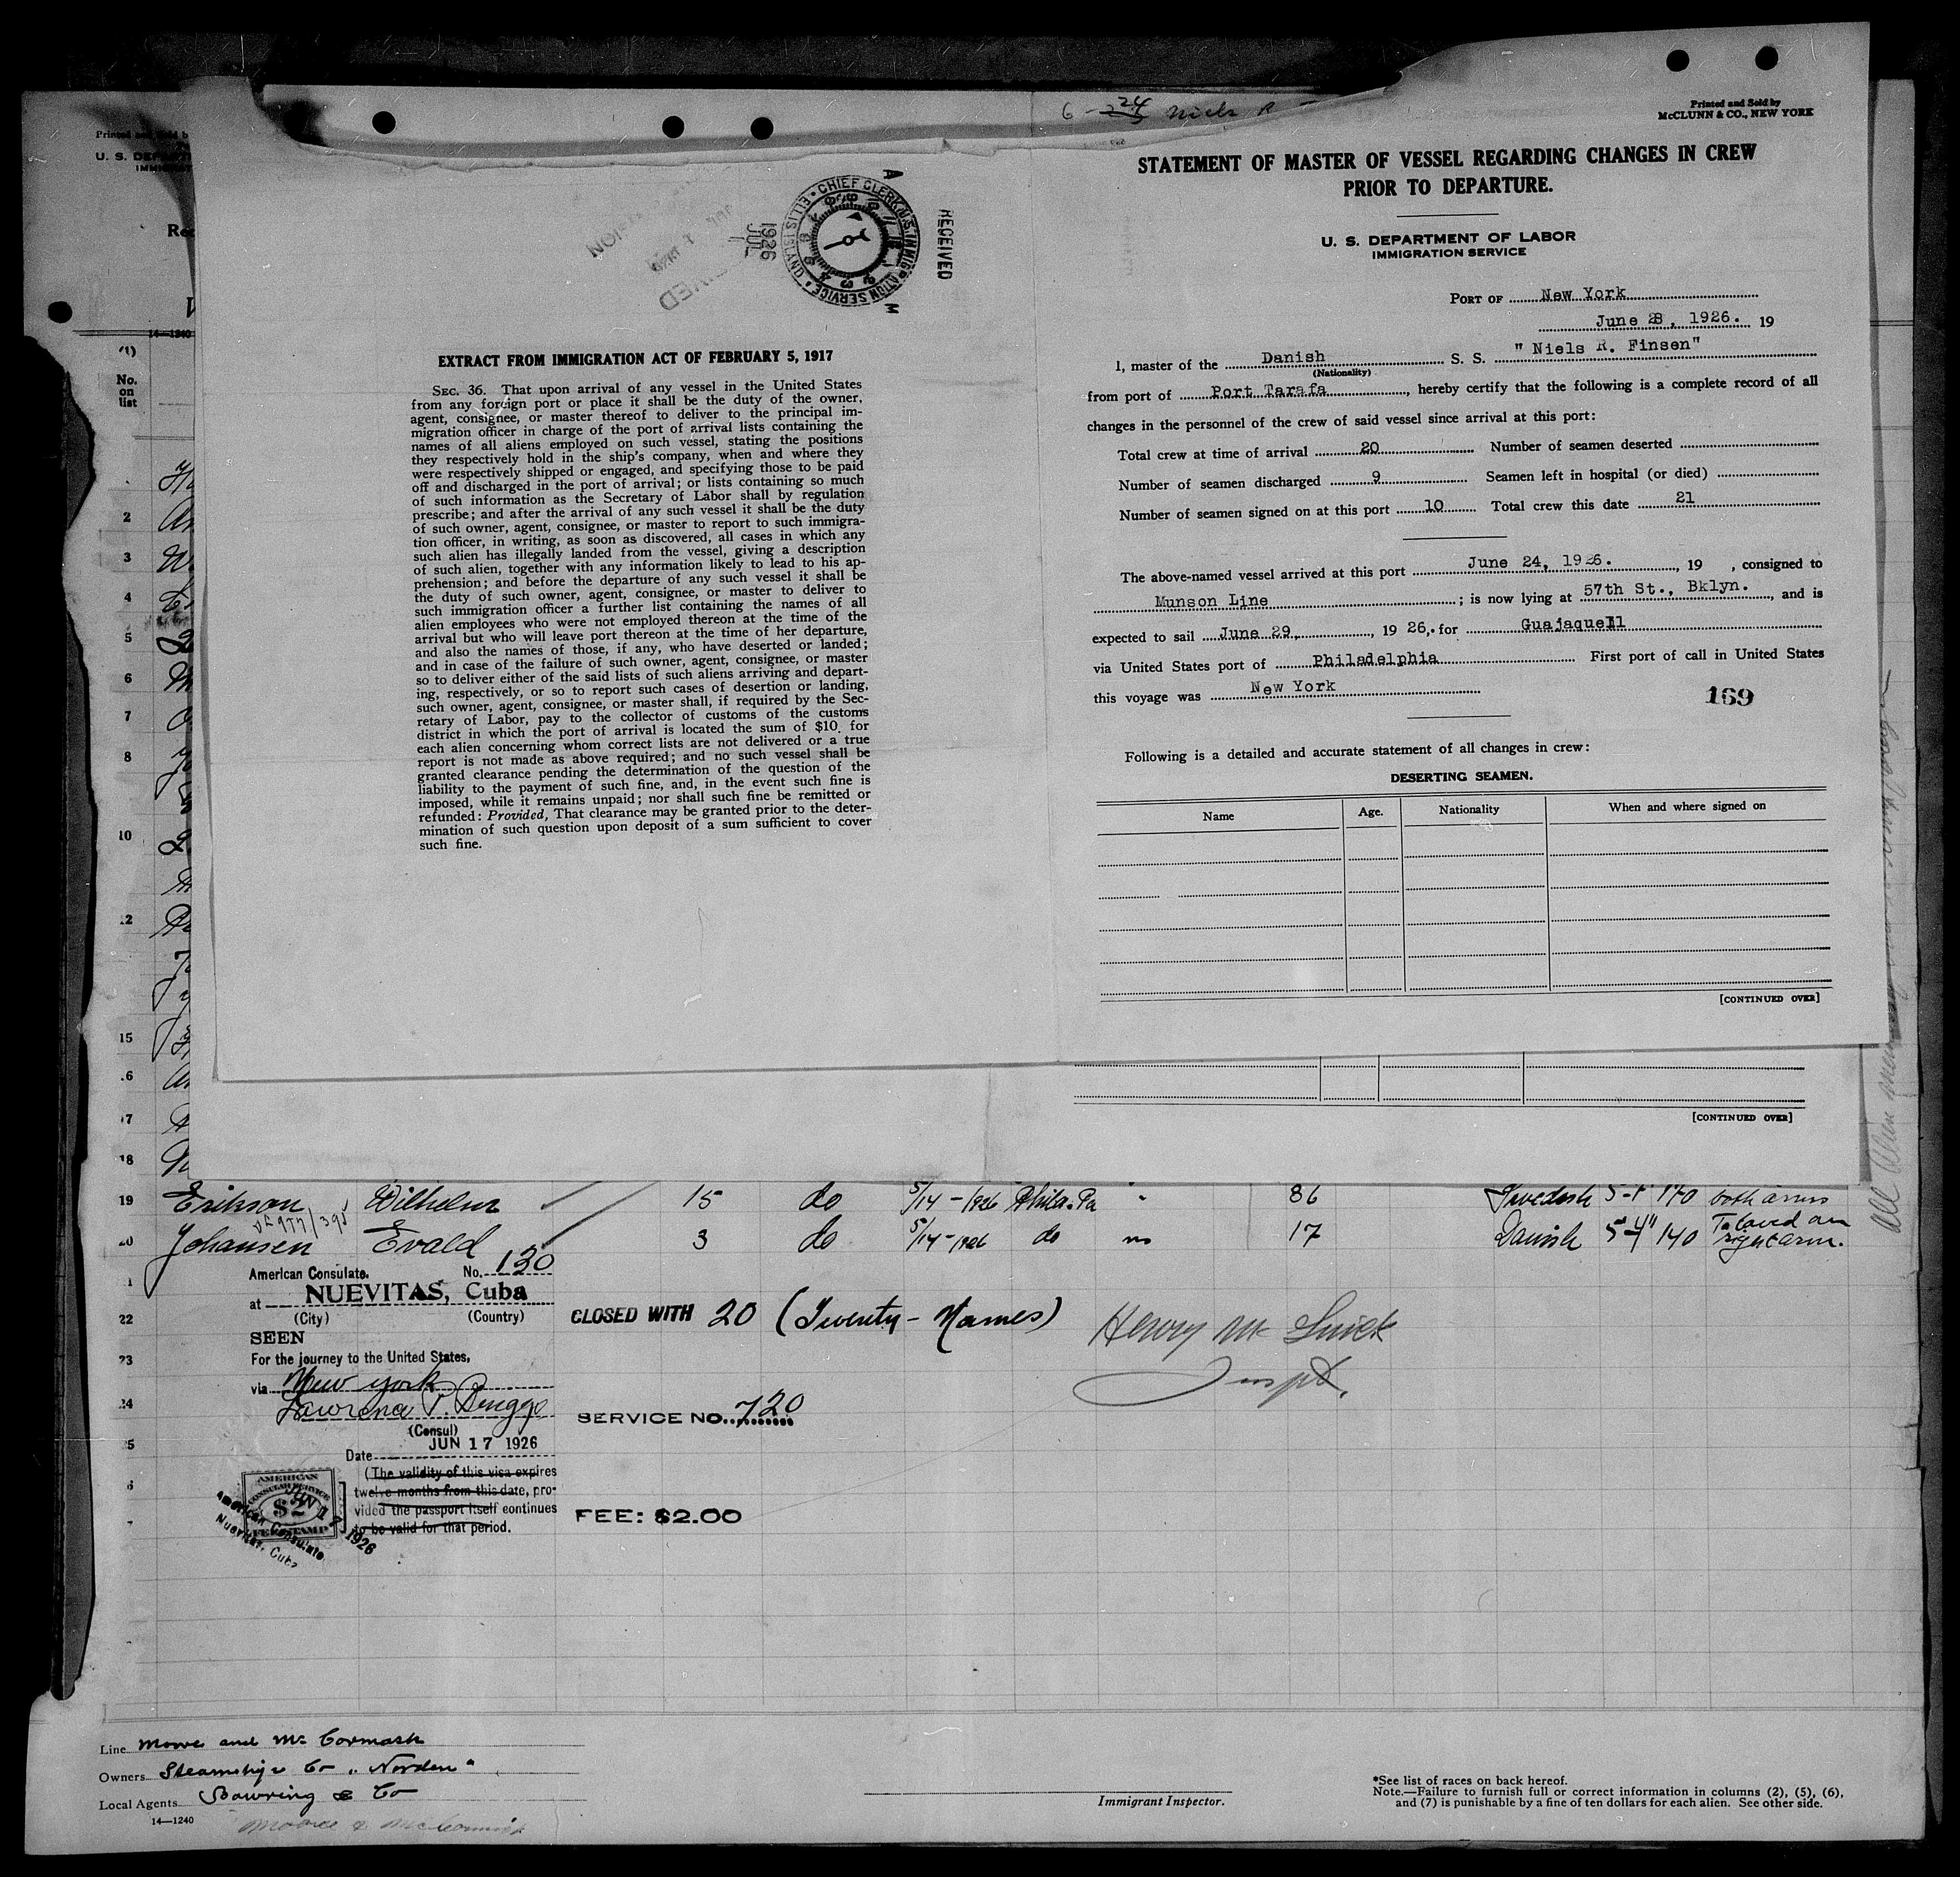 6 - 24 Niels R
Printed and Sold by
McCLUNN & CO., NEW YORK
STATEMENT OF MASTER OF VESSEL REGARDING CHANGES IN CREW
PRIOR TO DEPARTURE.
U. S. DEPARTMENT OF LABOR
IMMIGRATION SERVICE
PORT OF New York
June 28, 1926. 19
I, master of the Danish S. S. "Niels R. Finsen"
(Nationality)
from port of Port Tarafa, hereby certify that the following is a complete record of all
changes in the personnel of the crew of said vessel since arrival at this port:
Total crew at time of arrival 20 Number of seamen deserted
Number of seamen discharged 9 Seamen left in hospital (or died)
Number of seamen signed on at this port 10 Total crew this date 21
The above-named vessel arrived at this port June 24, 1926., 19 , consigned to
Munson Line; is now lying at 57th St., Bklyn., and is
expected to sail June 29, , 19 26, for Guajaquell
via United States port of Philadelphia First port of call in United States
this voyage was New York
169
Following is a detailed and accurate statement of all changes in crew:
DESERTING SEAMEN.
Name Age. Nationality When and where signed on
[CONTINUED OVER]
[CONTINUED OVER]
RECEIVED
CHIEF CLERK U.S. IMMIGRATION SERVICE ELLIS ISLAND
A M
1926
JUL
EXTRACT FROM IMMIGRATION ACT OF FEBRUARY 5, 1917
SEC. 36. That upon arrival of any vessel in the United States
from any foreign port or place it shall be the duty of the owner,
agent, consignee, or master thereof to deliver to the principal im-
migration officer in charge of the port of arrival lists containing the
names of all aliens employed on such vessel, stating the positions
they respectively hold in the ship's company, when and where they
were respectively shipped or engaged, and specifying those to be paid
off and discharged in the port of arrival; or lists containing so much
of such information as the Secretary of Labor shall by regulation
prescribe; and after the arrival of any such vessel it shall be the duty
of such owner, agent, consignee, or master to report to such immigra-
tion officer, in writing, as soon as discovered, all cases in which any
such alien has illegally landed from the vessel, giving a description
of such alien, together with any information likely to lead to his ap-
prehension; and before the departure of any such vessel it shall be
the duty of such owner, agent, consignee, or master to deliver to
such immigration officer a further list containing the names of all
alien employees who were not employed thereon at the time of the
arrival but who will leave port thereon at the time of her departure,
and also the names of those, if any, who have deserted or landed;
and in case of the failure of such owner, agent, consignee, or master
so to deliver either of the said lists of such aliens arriving and depart-
ing, respectively, or so to report such cases of desertion or landing,
such owner, agent, consignee, or master shall, if required by the Sec-
retary of Labor, pay to the collector of customs of the customs
district in which the port of arrival is located the sum of $10 for
each alien concerning whom correct lists are not delivered or a true
report is not made as above required; and no such vessel shall be
granted clearance pending the determination of the question of the
liability to the payment of such fine, and, in the event such fine is
imposed, while it remains unpaid; nor shall such fine be remitted or
refunded: Provided, That clearance may be granted prior to the deter-
mination of such question upon deposit of a sum sufficient to cover
such fine.
(1)
No.
on
list
2
3
4
5
6
7
8
10
15
18
19 Erikson Wilhelm 15 do 5/14-1926 Phila. Pa " 36 Swedish 170 both arms
20 Johansen Evald 3 do 5/14-1926 do no 17 Danish 5-4" 140 right arm.
American Consulate. No. 120
at NUEVITAS, Cuba
(City) (Country)
SEEN
For the journey to the United States,
via New York
(Consul)
JUN 17 1926
Date
(The validity of this visa expires
twelve months from this date, pro-
vided the passport itself continues
to be valid for that period.
AMERICAN
CONSULAR SERVICE
$2
FEE STAMP
American Consulate
Nuevitas, Cuba
JUN 17 1926
22 CLOSED WITH 20 (Twenty - Names)
Inspt.
23
24
SERVICE NO. 720
FEE: $2.00
Line Moore and McCormack
Owners Steamship Co "Norden"
Local Agents Bowring & Co
14—1240 Moore & McCormick
Immigrant Inspector.
*See list of races on back hereof.
Note.—Failure to furnish full or correct information in columns (2), (5), (6),
and (7) is punishable by a fine of ten dollars for each alien. See other side.